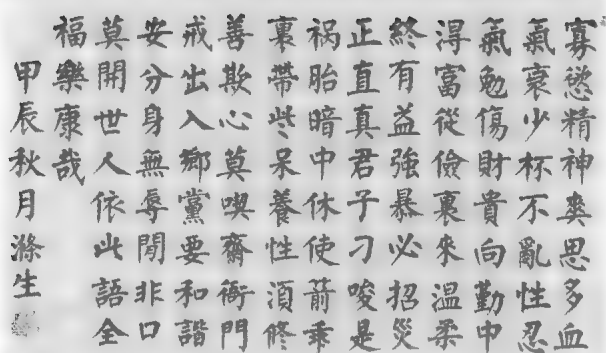 寡慾精神爽思多血
氣衰少杯不亂性忍
氣勉傷財貴向勤中
淂富從儉裏來温柔
終有益強暴必招災
正直真君子刁唆是
禍胎暗中休使箭乖
裏帶些呆養性須修
善欺心莫喫齋衙門
戒出入鄉黨要和諧
安分身無辱閒非口
莫開世人依此語全
福樂康哉
甲辰秋月滌生